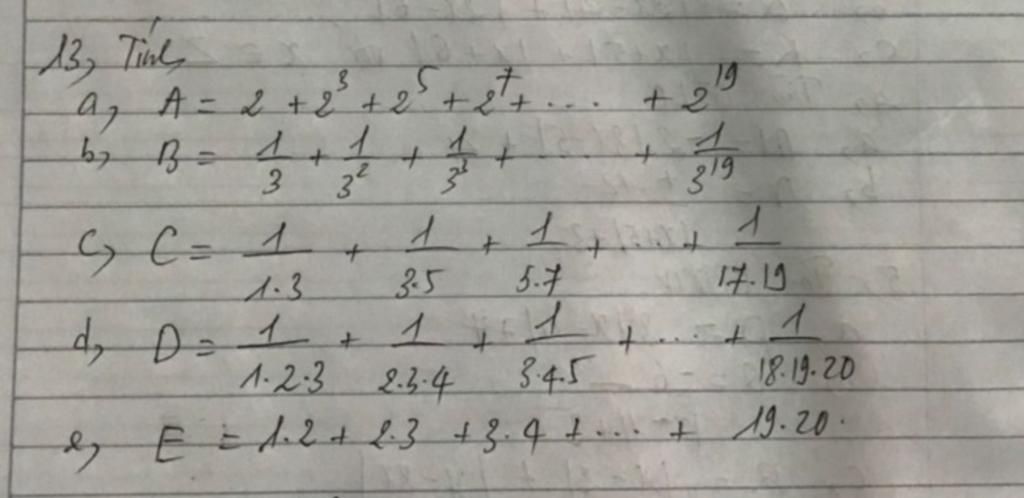 13, Tính
a, A = 2 + 2³ + 2⁵ + 2⁷ + .... + 2¹⁹
b, B = 1/3 + 1/3² + 1/3³ + ..... + 1/3¹⁹
c, C = 1/1.3 + 1/3.5 + 1/5.7 + + 1/17.19
d, D = 1/1.2.3 + 1/2.3.4 + 1/3.4.5 + .... + 1/18.19.20
e, E = 1.2 + 2.3 + 3.4 + .... + 19.20.